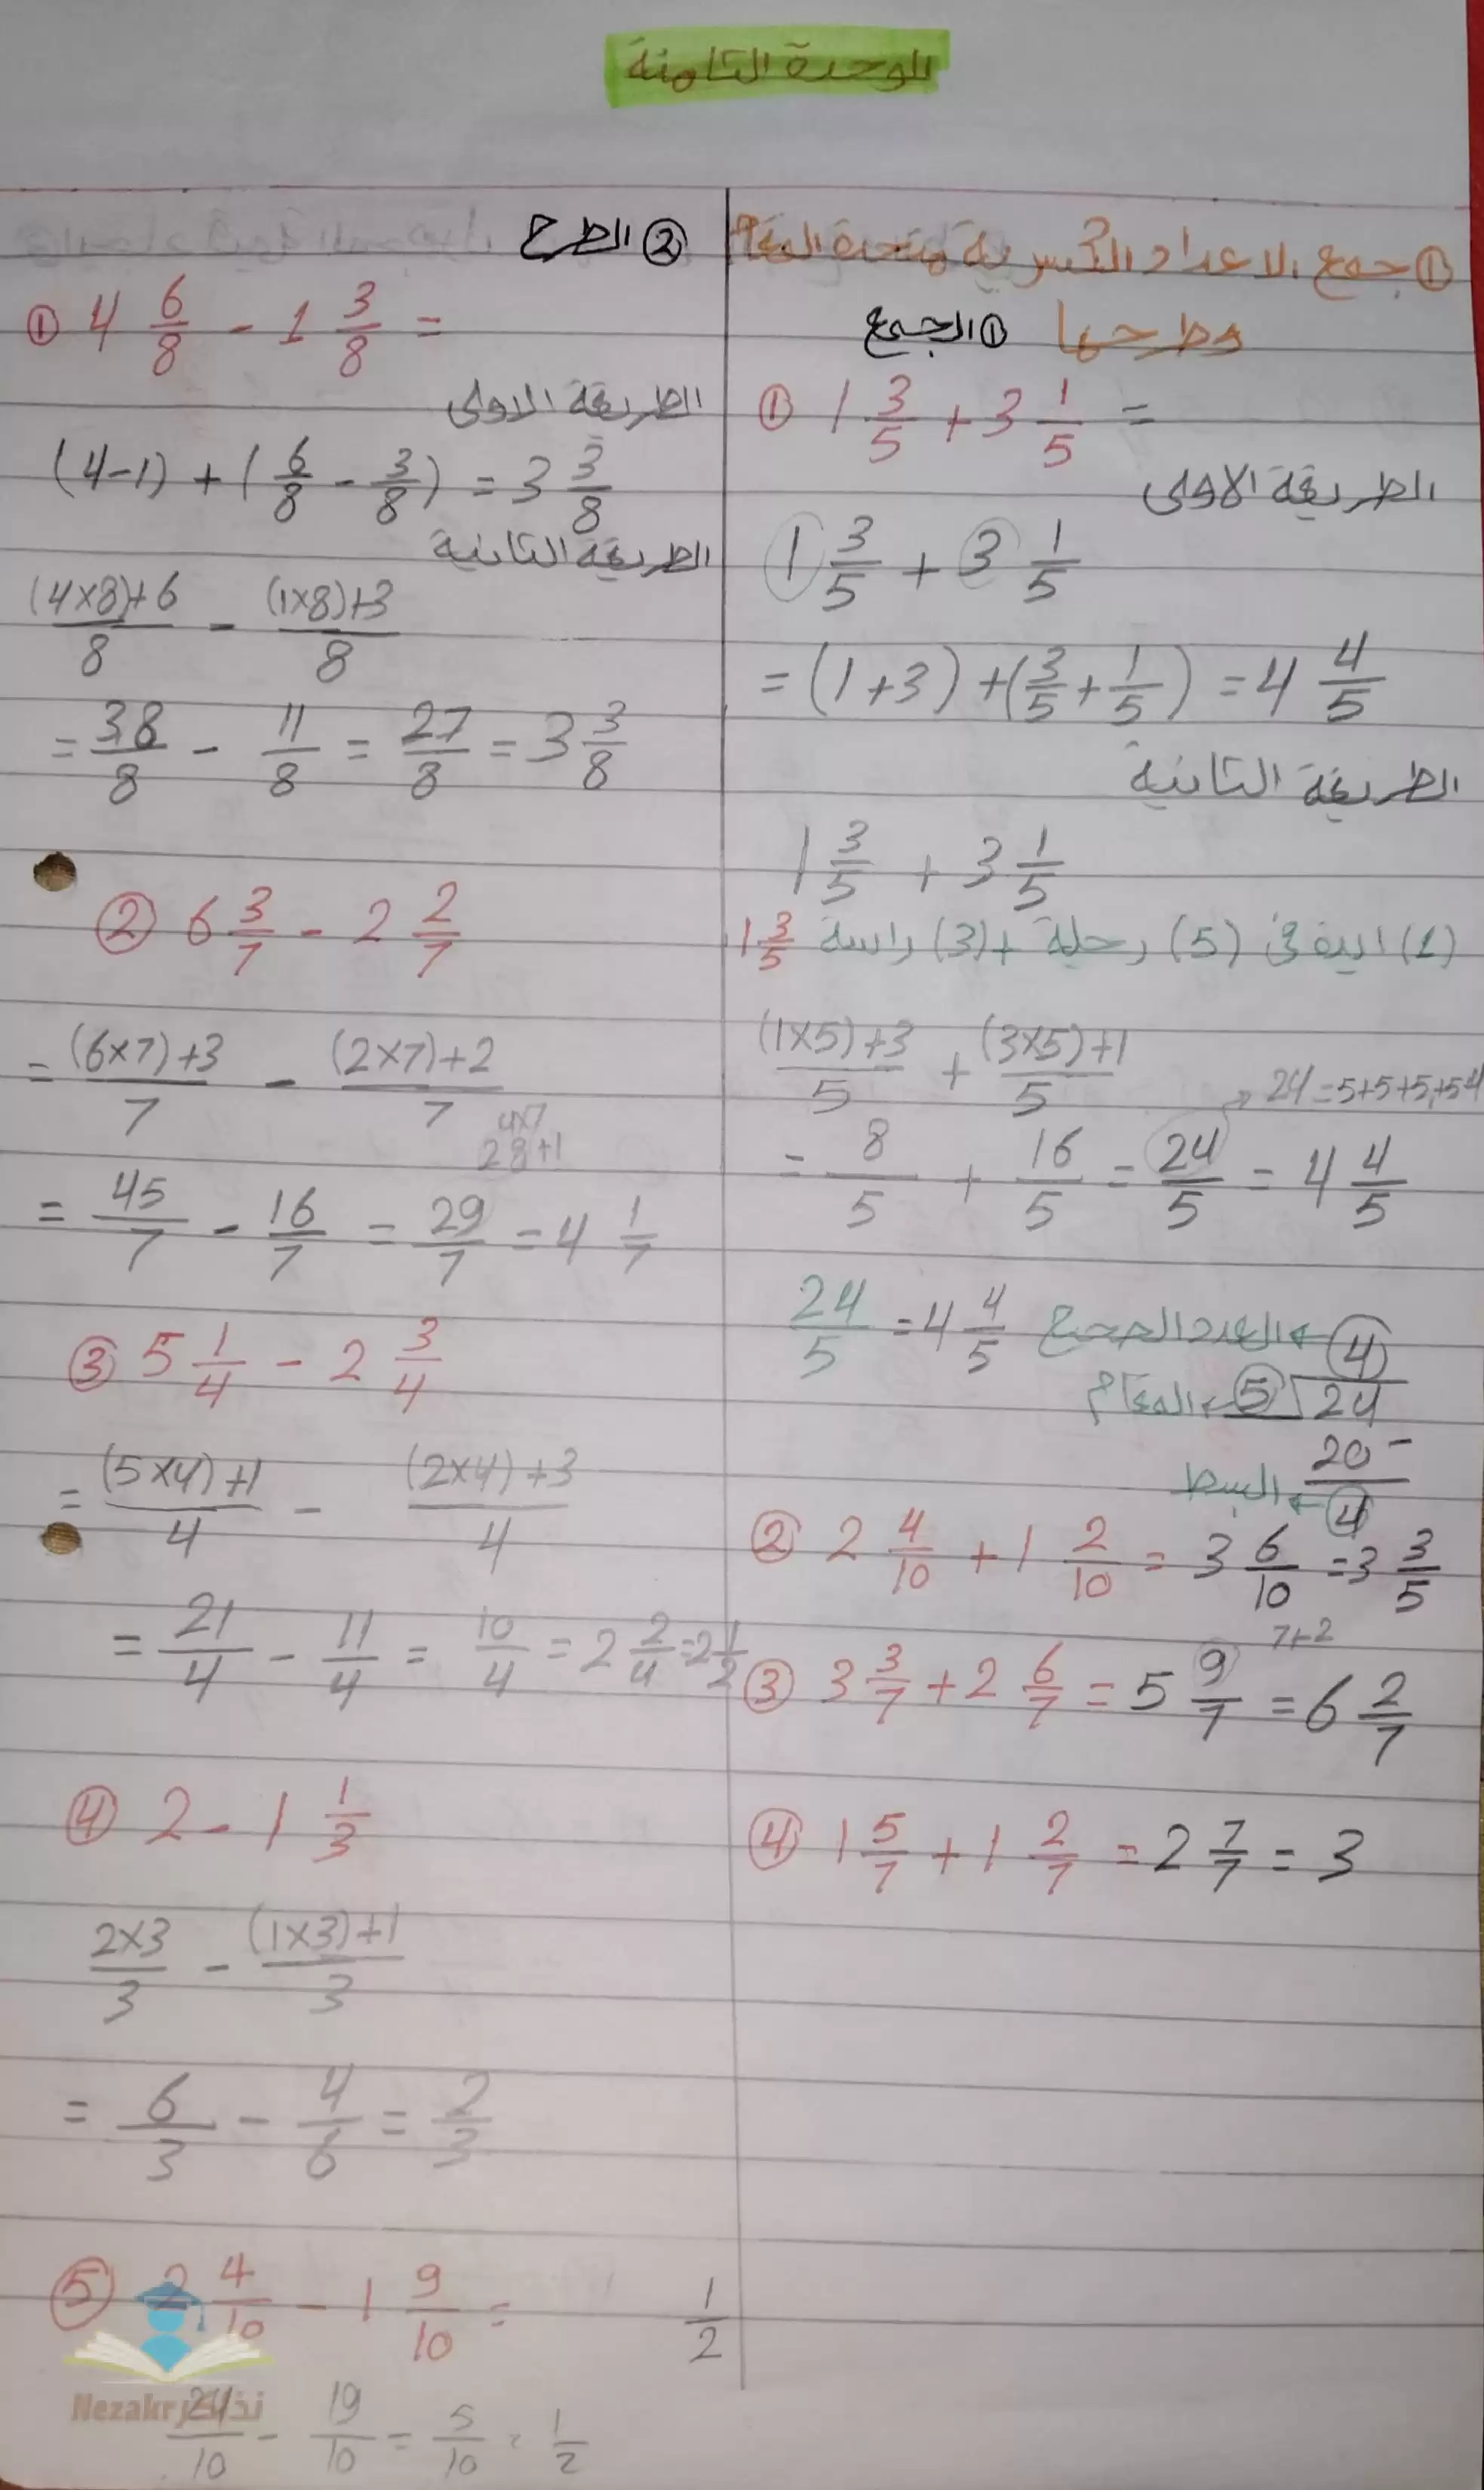 الوحدة الثامنة
① جمع الاعداد الكسرية متحدة المقام
وطرحها ① الجمع
① 1 3/5 + 3 1/5 =
الطريقة الاولى
1 3/5 + 3 1/5
= (1+3) + (3/5 + 1/5) = 4 4/5
الطريقة الثانية
1 3/5 + 3 1/5
(1) اليف في (5) رجليه + (3) راسه 1 3/5
(1×5)+3/5 + (3×5)+1/5
24=5+5+5+5+4
= 8/5 + 16/5 = 24/5 = 4 4/5
24/5 = 4 4/5 العدد الصحيح ← 4
المقام ← 5 24
20 -
البسط ← 4
② 2 4/10 + 1 2/10 = 3 6/10 = 3 3/5
7+2
③ 3 3/7 + 2 6/7 = 5 9/7 = 6 2/7
④ 1 5/7 + 1 2/7 = 2 7/7 = 3
② الطرح
① 4 6/8 - 1 3/8 =
الطريقة الاولى
(4-1) + (6/8 - 3/8) = 3 3/8
الطريقة الثانية
(4×8)+6/8 - (1×8)+3/8
= 38/8 - 11/8 = 27/8 = 3 3/8
② 6 3/7 - 2 2/7
= (6×7)+3/7 - (2×7)+2/7
4×7
28+1
= 45/7 - 16/7 = 29/7 = 4 1/7
③ 5 1/4 - 2 3/4
= (5×4)+1/4 - (2×4)+3/4
= 21/4 - 11/4 = 10/4 = 2 2/4 = 2 1/2
④ 2 - 1 1/3
2×3/3 - (1×3)+1/3
= 6/3 - 4/6 = 2/3
⑤ 2 4/10 - 1 9/10 = 1/2
Nezakr نذاكر
24/10 - 19/10 = 5/10 = 1/2